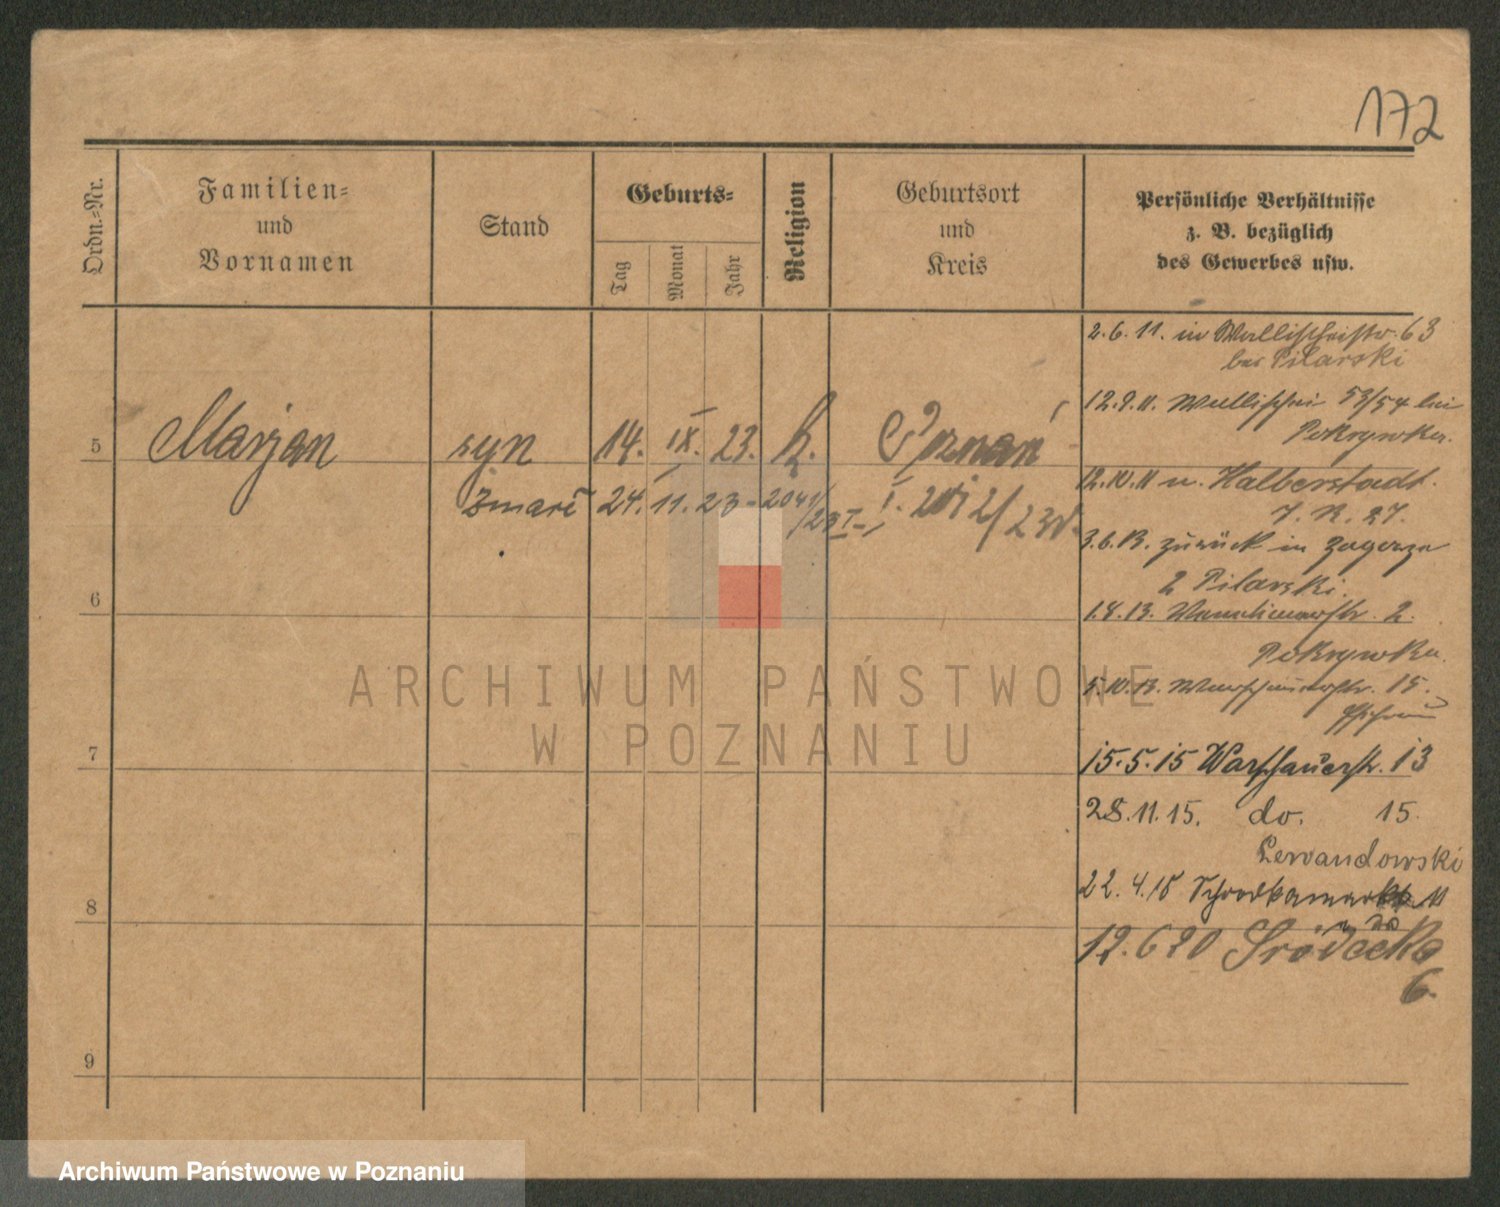 172
Ordn.=Nr.
Familien=
und
Vornamen
Stand
Geburts=
Tag
Monat
Jahr
Religion
Geburtsort
und
Kreis
Persönliche Verhältnisse
z. B. bezüglich
des Gewerbes usw.
5
Marjan
syn
14. IX. 23.
K.
Poznań
Zmarł 24. 11. 23 - 2041/23
6
7
8
9
2.6.11. in Wallischeistr. 63
bei Pilarski
12.9.11. Wallischei 53/54 bei
Pokrywka.
12.10.11 n. Halberstadt.
J. R. 27.
3.6.13. zurück in Zagorze
2 Pilarski.
1.8.13. 2.
Pokrywka.
5.10.13. Warschauerstr. 15.
15.5.15 Warschauerstr. 13
28.11.15. do. 15.
Lewandowski
22.4.18 Schrodkamarkt 11
12.6 20 Śródecka
6.
ARCHIWUM PAŃSTWOWE
W POZNANIU
Archiwum Państwowe w Poznaniu